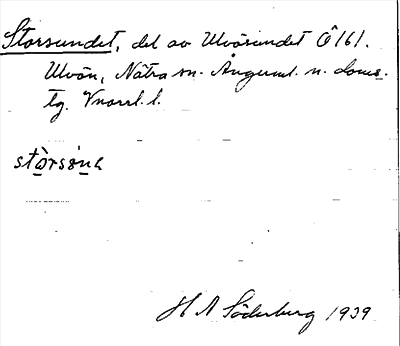 Storsundet, del av Ulvösundet Ö161.
Ulvön, Nätra sn. Ångerml. n. doms.
tg. Vnorrl. l.
stòrsøna
H A Söderberg 1939